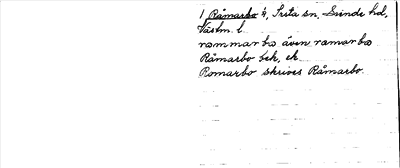 1 Råmarbo 4, Irsta sn, Siende hd,
Västm. l.
rammarbo även ramarbo
Råmarbo bek, ek.
Romarbo skrives Råmarbo.